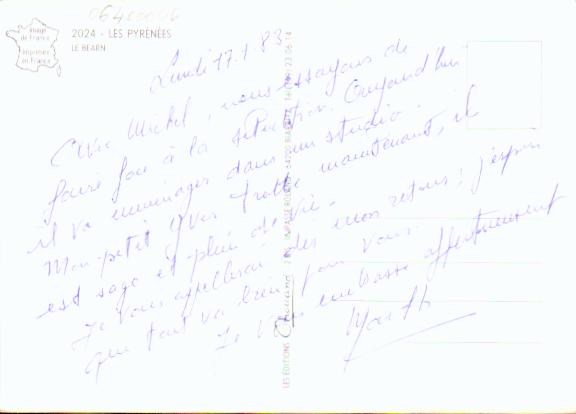 06400006
Image
de France
Imprimée
en France
2024 - LES PYRÉNÉES
LE BÉARN
Lundi 17.1.83
Cher Michel, nous essayons de
faire face à la situation. Aujourd'hui
il va emménager dans un studio.
Mon petit Yves trotte maintenant, il
est sage et plein de vie.
Je vous appellerai dès mon retour ; j'espère
que tout va bien pour vous.
Je vous embrasse affectueusement
LES ÉDITIONS
IMPASSE 64200 BIARRITZ 23 06 14